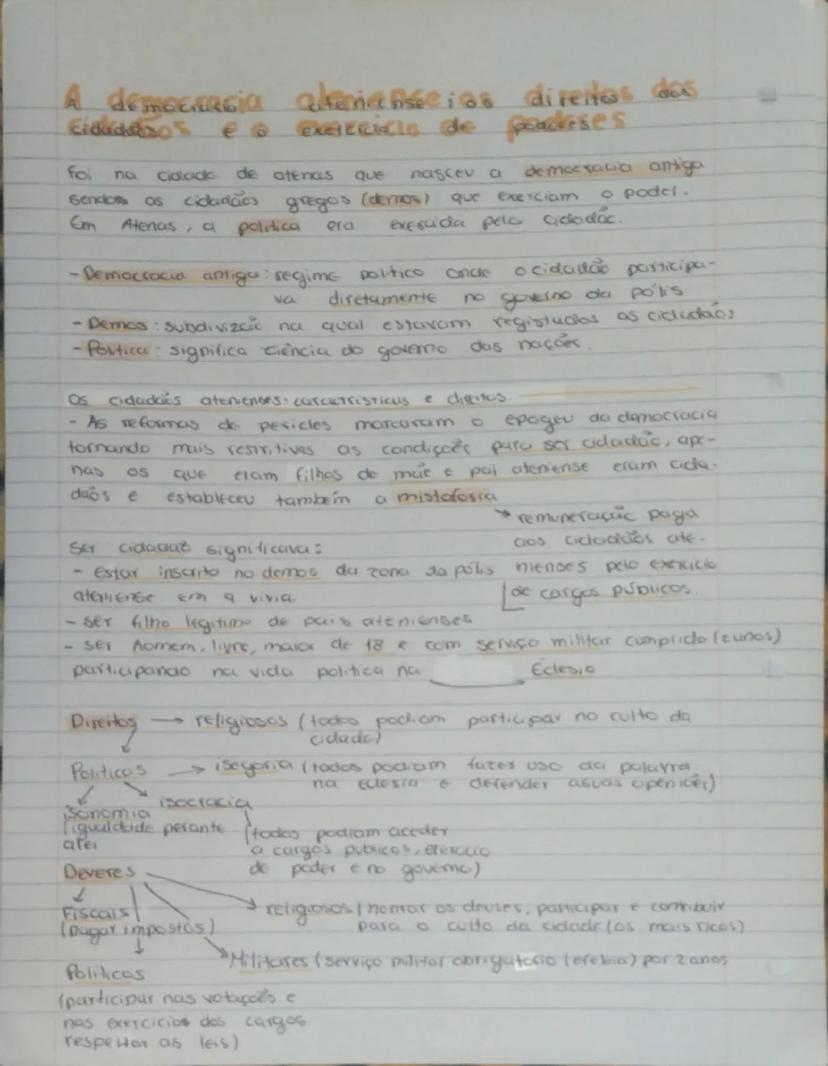 A democracia ateniense: os direitos dos
cidadãos e o exercício de poderes
Foi na cidade de atenas que nasceu a democracia antiga
sendo os cidadãos gregos (demos) que exerciam o poder.
Em Atenas, a política era exercida pelo cidadão.
- Democracia antiga: regime politico onde o cidadão participa-
va diretamente no governo da polis
- Demos: subdivizão na qual estavam registados os cidadãos
- Politica: significa ciência do governo das nações.
Os cidadãos atenienses: caracteristicas e direitos
- As reformas de pericles marcaram o epogeu da democracia
tornando mais restritivas as condições para ser cidadão, ape-
nas os que eram filhos de mãe e pai ateniense eram cida-
daõs e estableceu também a mistoforia
→ remuneração paga
aos cidadãos ate-
nienses pelo exercicio
de cargos públicos.
Ser cidadão significava:
- estar inscrito no demos da zona da polis
ateniense em q vivia.
- ser filho legitimo de pais atenienses
- ser homem, livre, maior de 18 e com serviço militar cumprido (2 anos)
participando na vida politica na Eclesia
Direitos → religiosos (todos podiam participar no culto da
cidade)
Politicos → isegoria (todos podiam fazer uso da palavra
na Eclesia e defender as suas openiões)
isocracia
isonomia
(igualdade perante
a lei
(todos podiam aceder
a cargos publicos, exercicio
de poder e no governo)
Deveres
Fiscais
(pagar impostos)
religiosos (honrar os deuses, participar e contribuir
para o culto da cidade (os mais ricos)
Militares (serviço militar obrigatorio (efebia) por 2 anos
Politicos
(participar nas votações e
nas exercicios dos cargos
respeitar as leis)